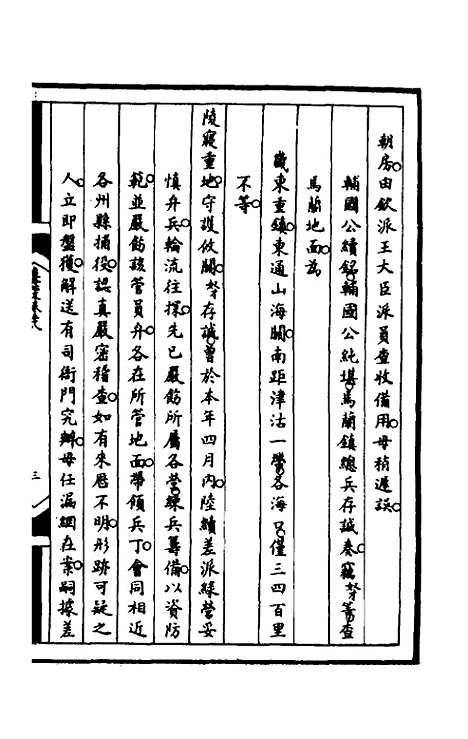 朝房由欽派王大臣派員查收備用毋稍遲誤
輔國公續銘輔國公純堪馬蘭鎮總兵存誠奏竊拏等查
馬蘭地面為
畿東重鎮東通山海關南距津沽一帶各海口僅三四百里
不等
陵寢重地守護攸關拏存誠曾於本年四月內陸續差派綠營妥
慎弁兵輪流往探先已嚴飭所屬各營練兵籌備以資防
範並嚴飭該管員弁各在所管地面帶領兵丁會同相近
各州縣捕役認真嚴密稽查如有來歷不明形跡可疑之
人立即盤獲解送有司衙門究辦毋任漏網在案嗣據差
三